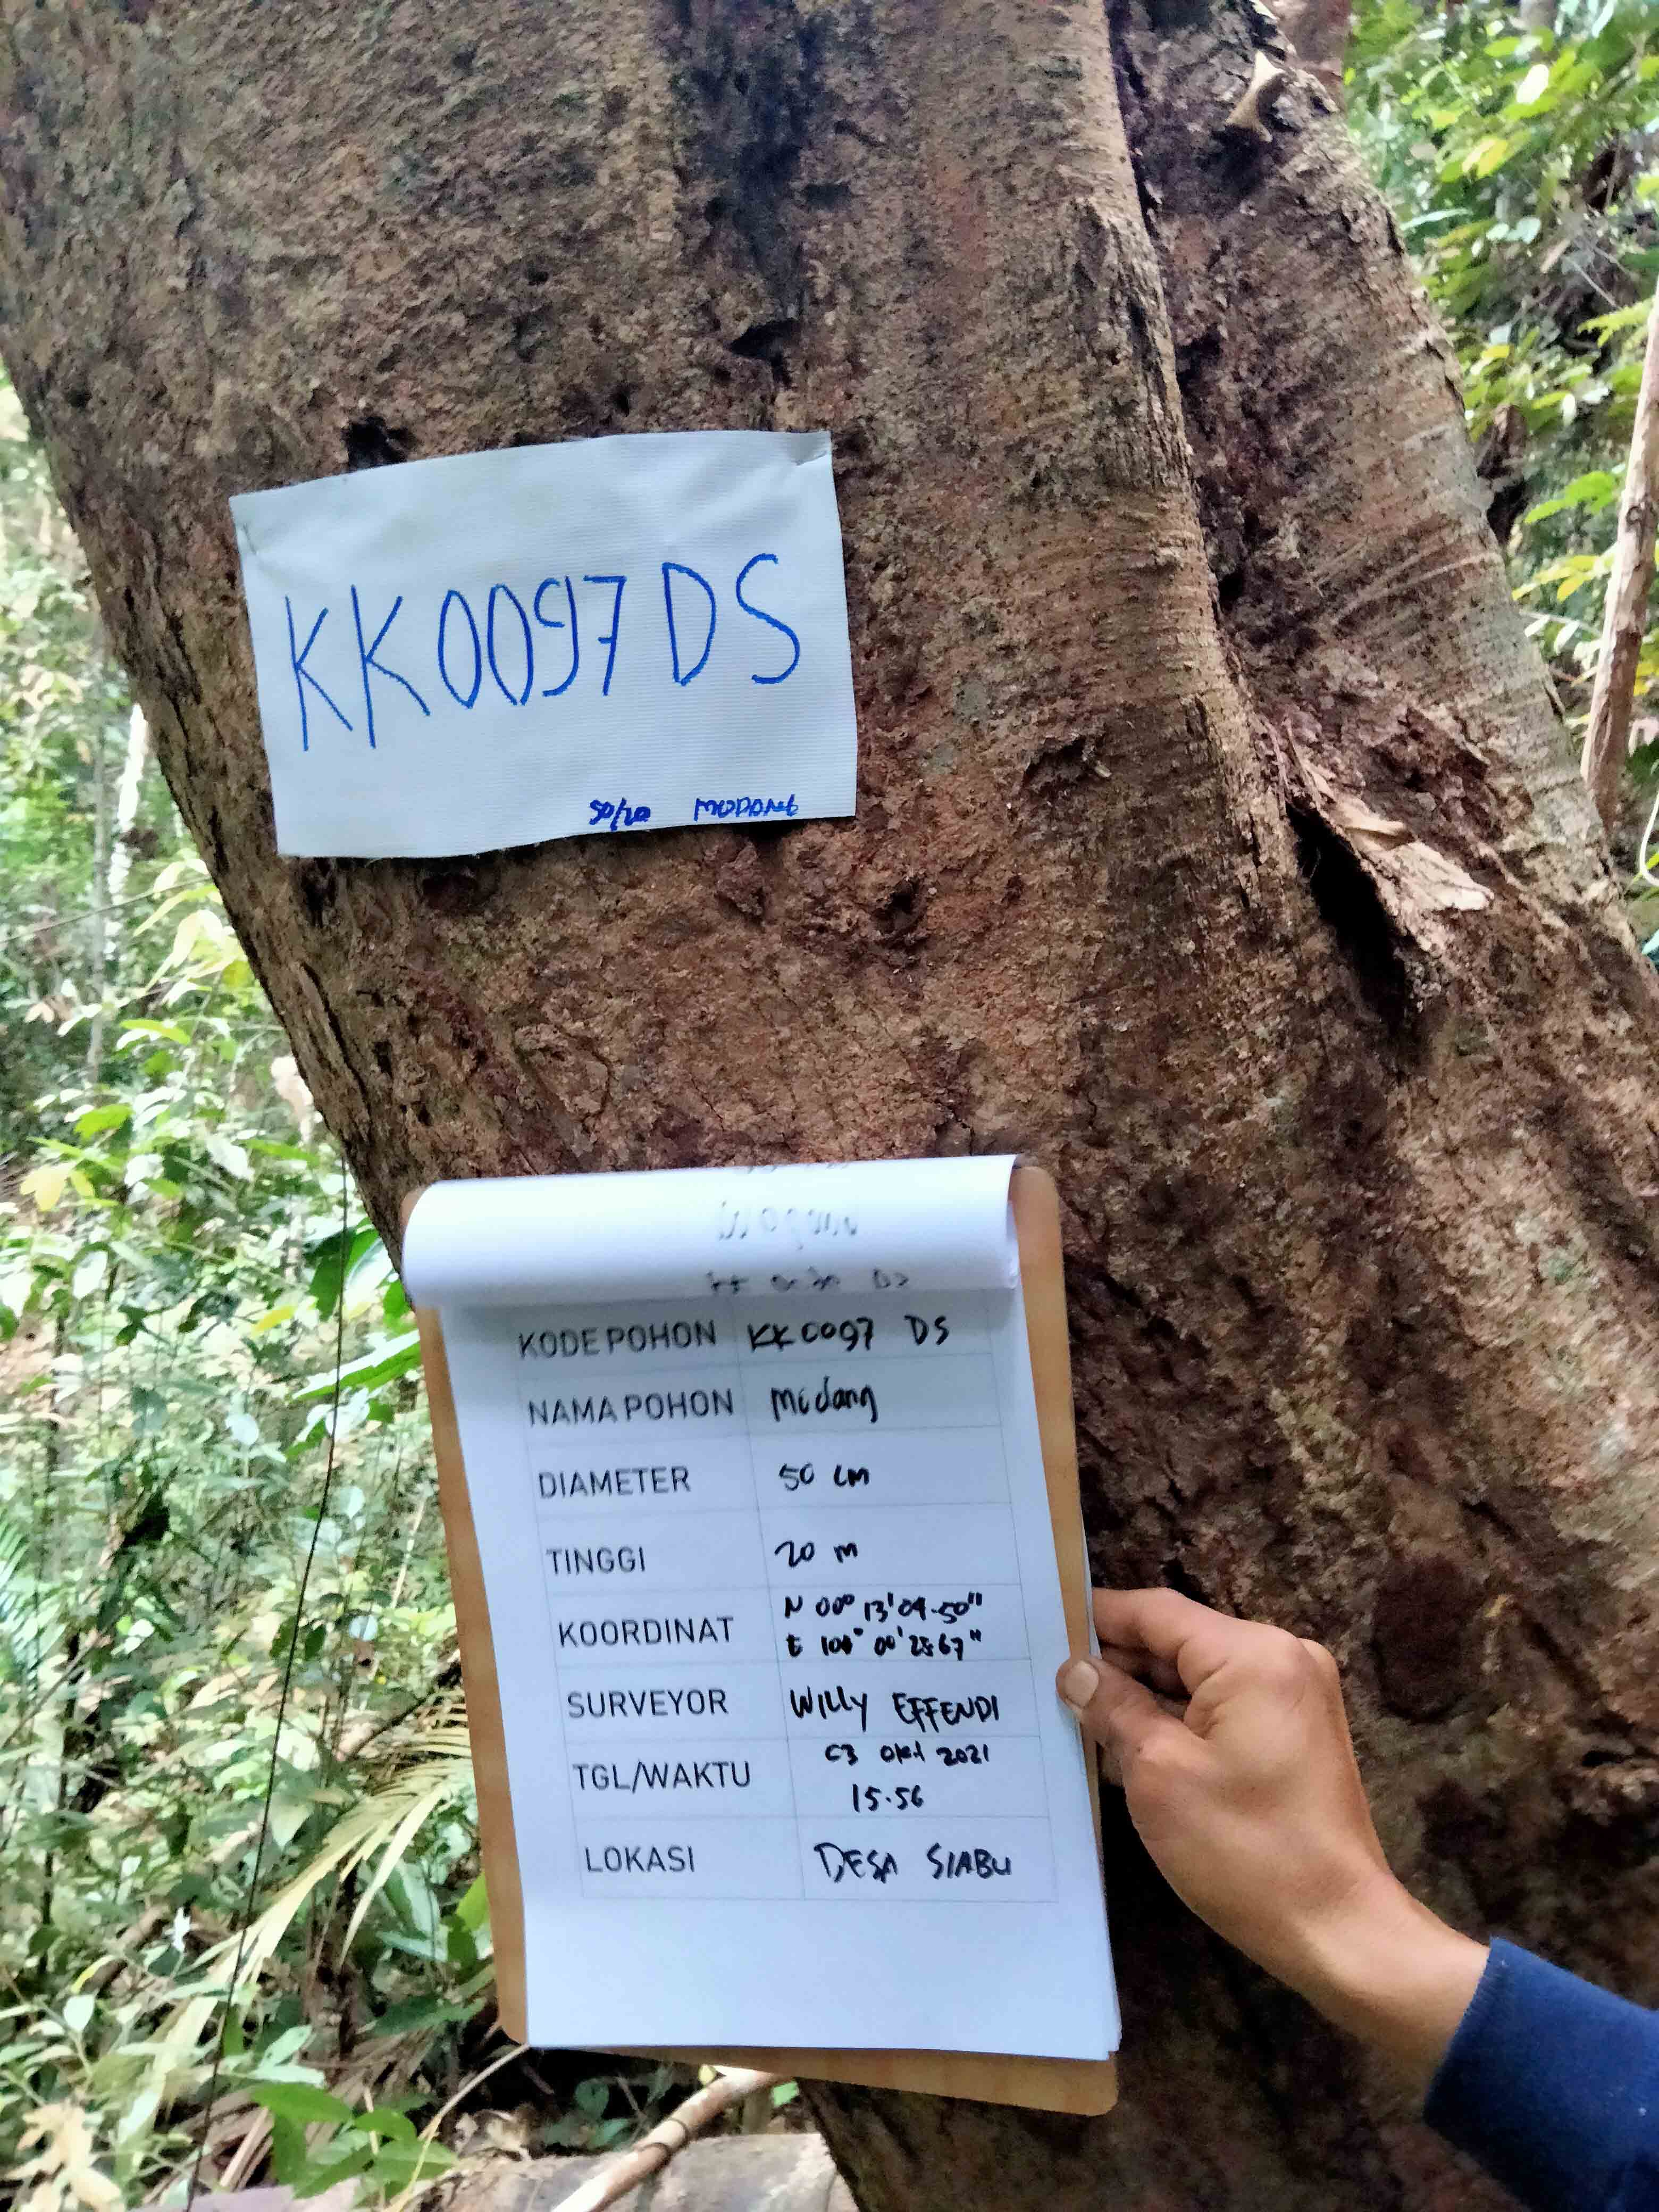 KK0097 DS
50/20 MODANG
KODE POHON KK0097 DS
NAMA POHON Modang
DIAMETER 50 CM
TINGGI 20 m
KOORDINAT N 00° 13' 04.50"
E 100° 00'
SURVEYOR Willy EFFENDI
TGL/WAKTU 03 Okt 2021
15.56
LOKASI DESA SIABU